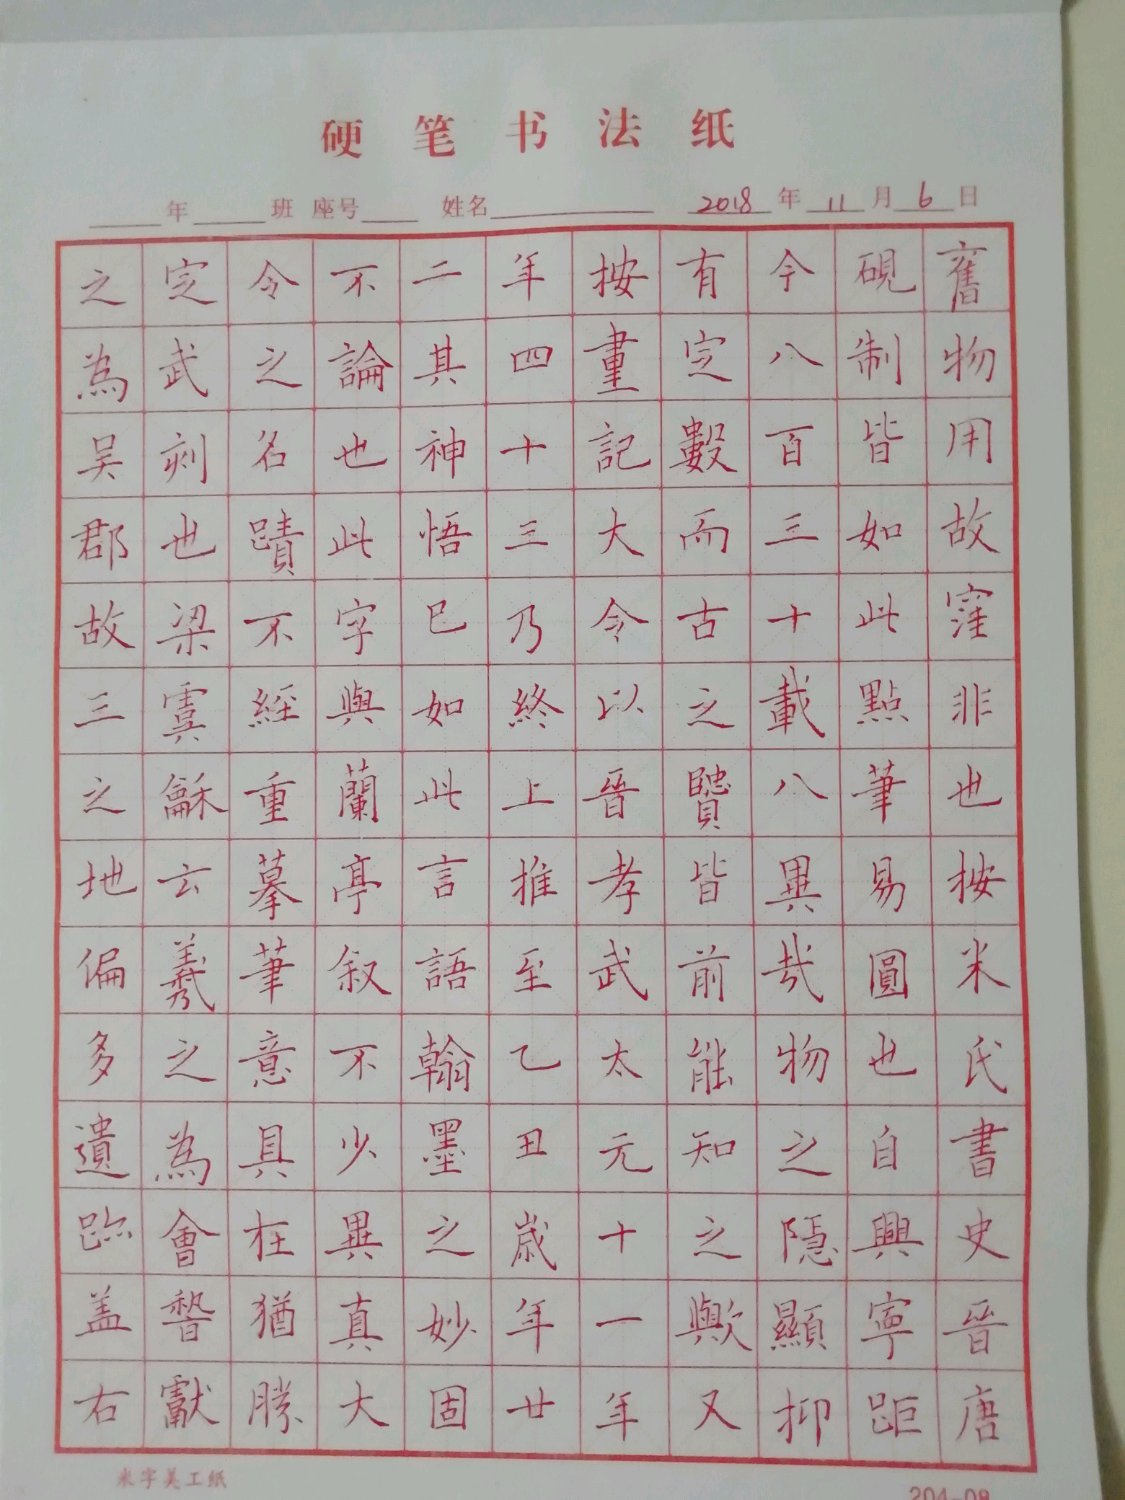 硬笔书法纸
年 班 座号 姓名 2018 年 11 月 6 日
舊物用故窪非也按米氏書史晉唐
硯制皆如此點筆易圓也自興寧距
今八百三十載八異哉物之隱顯抑
有定數而古之賢皆前能知之歟又
按畫記大令以晉孝武太元十一年
年四十三乃終上推至乙丑歲年廿
二其神悟已如此言語翰墨之妙固
不論也此字與蘭亭叙不少異真大
令之名蹟不經重摹筆意具在猶勝
定武刻也梁虞龢云羲之為會稽獻
之為吴郡故三之地偏多遺跡盖右
米字美工纸
204-09